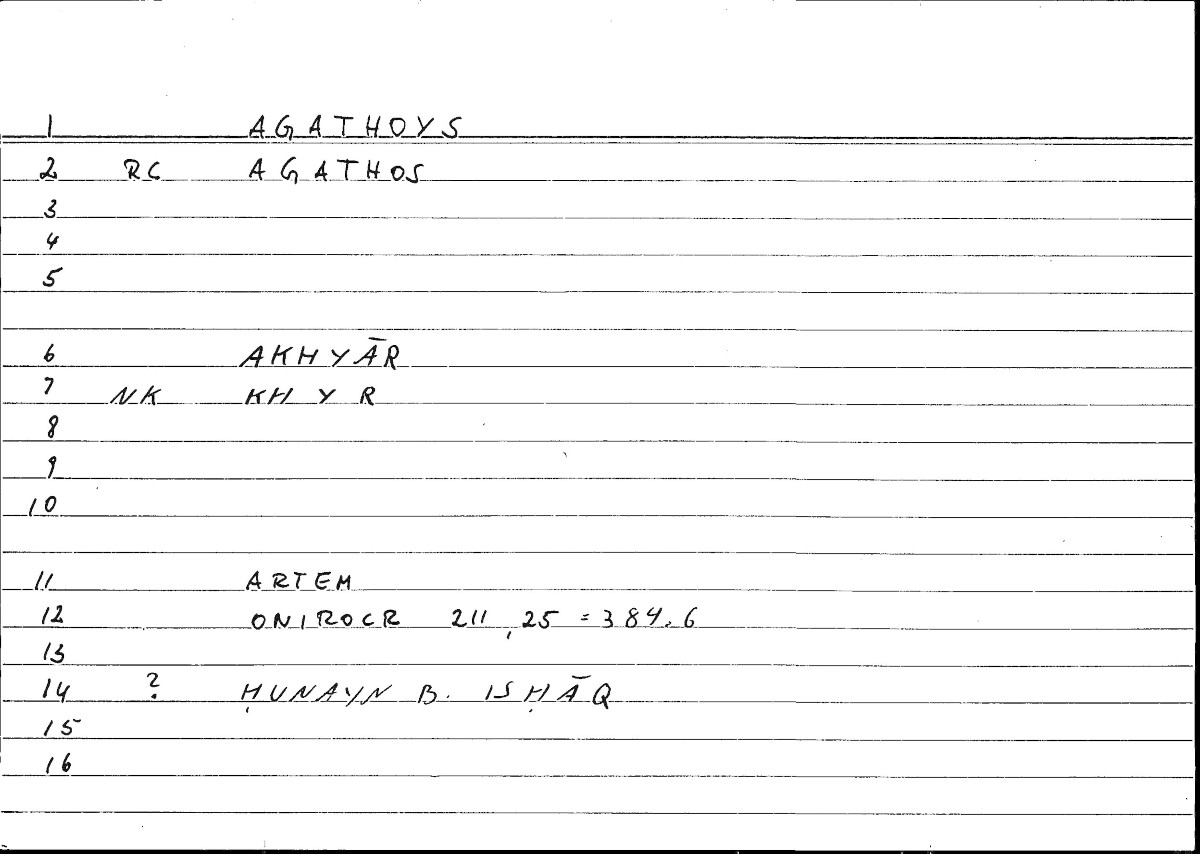 1 AGATHOYS
2 RC AGATHOS
3
4
5
6 AKHYĀR
7 NK KH Y R
8
9
10
11 ARTEM
12 ONIROCR 211,25 = 384.6
13
14 ? ḤUNAYN B. ISḤĀQ
15
16